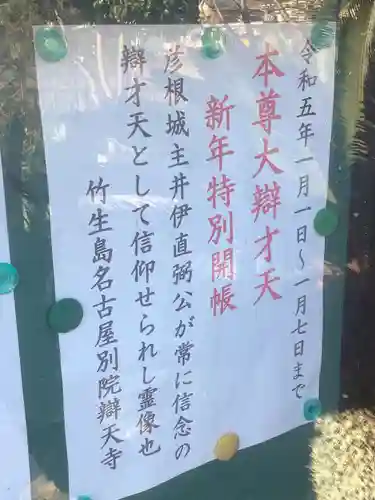 令和五年一月一日～一月七日まで
本尊大辯才天
新年特別開帳
彦根城主井伊直弼公が常に信念の
辯才天として信仰せられし霊像也
竹生島名古屋別院辯天寺